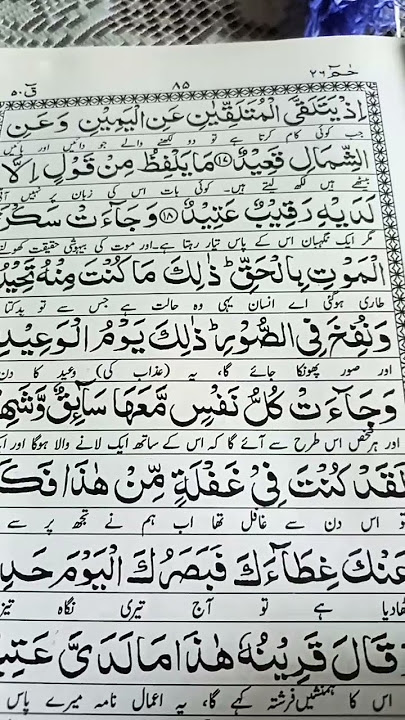 حٰمٓ ٢٦ ٨٥ قٓ ٥٠
اِذْ يَتَلَقَّى الْمُتَلَقِّيٰنِ عَنِ الْيَمِيْنِ وَعَنِ
جب کوئی کام کرتا ہے تو دو لکھنے والے جو دائیں اور بائیں
الشِّمَالِ قَعِيْدٌ ۝١٧ مَا يَلْفِظُ مِنْ قَوْلٍ اِلَّا
بیٹھے ہیں لکھ لیتے ہیں۔ کوئی بات اس کی زبان پر نہیں آتی
لَدَيْهِ رَقِيْبٌ عَتِيْدٌ ۝١٨ وَجَآءَتْ سَكْرَ
مگر ایک نگہبان اس کے پاس تیار رہتا ہے۔ اور موت کی بیہوشی حقیقت کھولنے
الْمَوْتِ بِالْحَقِّ ؕ ذٰلِكَ مَا كُنْتَ مِنْهُ تَحِيْدُ
طاری ہوگئی اے انسان یہی وہ حالت ہے جس سے تو بدکتا
وَنُفِخَ فِي الصُّوْرِ ؕ ذٰلِكَ يَوْمُ الْوَعِيْدِ
اور صور پھونکا جائے گا، یہ (عذاب کی) وعید کا دن
وَجَآءَتْ كُلُّ نَفْسٍ مَّعَهَا سَآئِقٌ وَّشَهِيْ
اور ہر شخص اس طرح سے آئے گا کہ اس کے ساتھ ایک لانے والا ہوگا اور ایک
لَقَدْ كُنْتَ فِيْ غَفْلَةٍ مِّنْ هٰذَا فَكَ
تو اس دن سے غافل تھا اب ہم نے تجھ پر سے
عَنْكَ غِطَآءَكَ فَبَصَرُكَ الْيَوْمَ حَدِ
ہٹادیا ہے تو آج تیری نگاہ تیز
قَالَ قَرِيْنُهٗ هٰذَا مَا لَدَيَّ عَتِيْ
اس کا ہمنشیں فرشتہ کہے گا، یہ اعمال نامہ میرے پاس